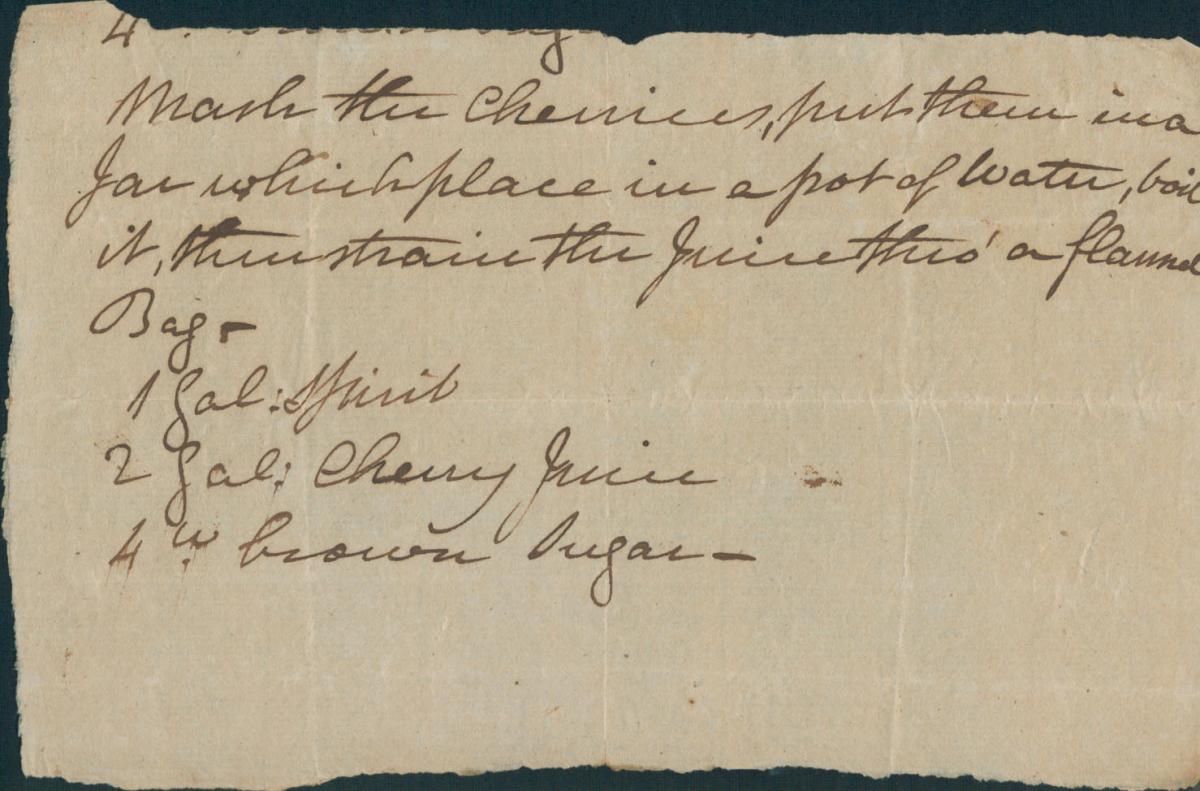 4 brown Sug
Mash the Cherries, put them in a
Jar which place in a pot of Water, boil
it, then strain the Juice thro' a flannel
Bag -
1 Gal: Spirit
2 Gal: Cherry Juice
4 lb. brown Sugar -